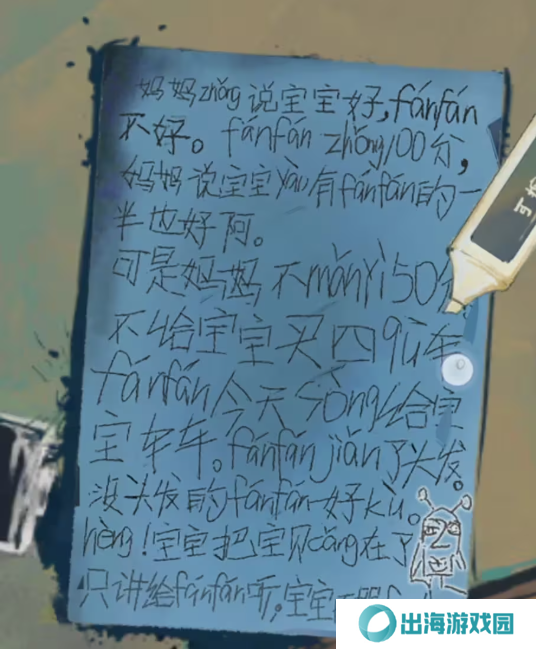 妈妈zhǒng说宝宝好，fánfán
不好。fánfán zhǒng100分，
妈妈说宝宝yào有fánfán的一
半也好阿。
可是妈妈不mǎnyì50分
不给宝宝买四qū车
fánfán今天sòng给宝
宝车车。fánfán jiǎn了头发。
没头发的fánfán好kù。
hèng！宝宝把宝贝cáng在了
只讲给fánfán听，宝宝
出海游戏园